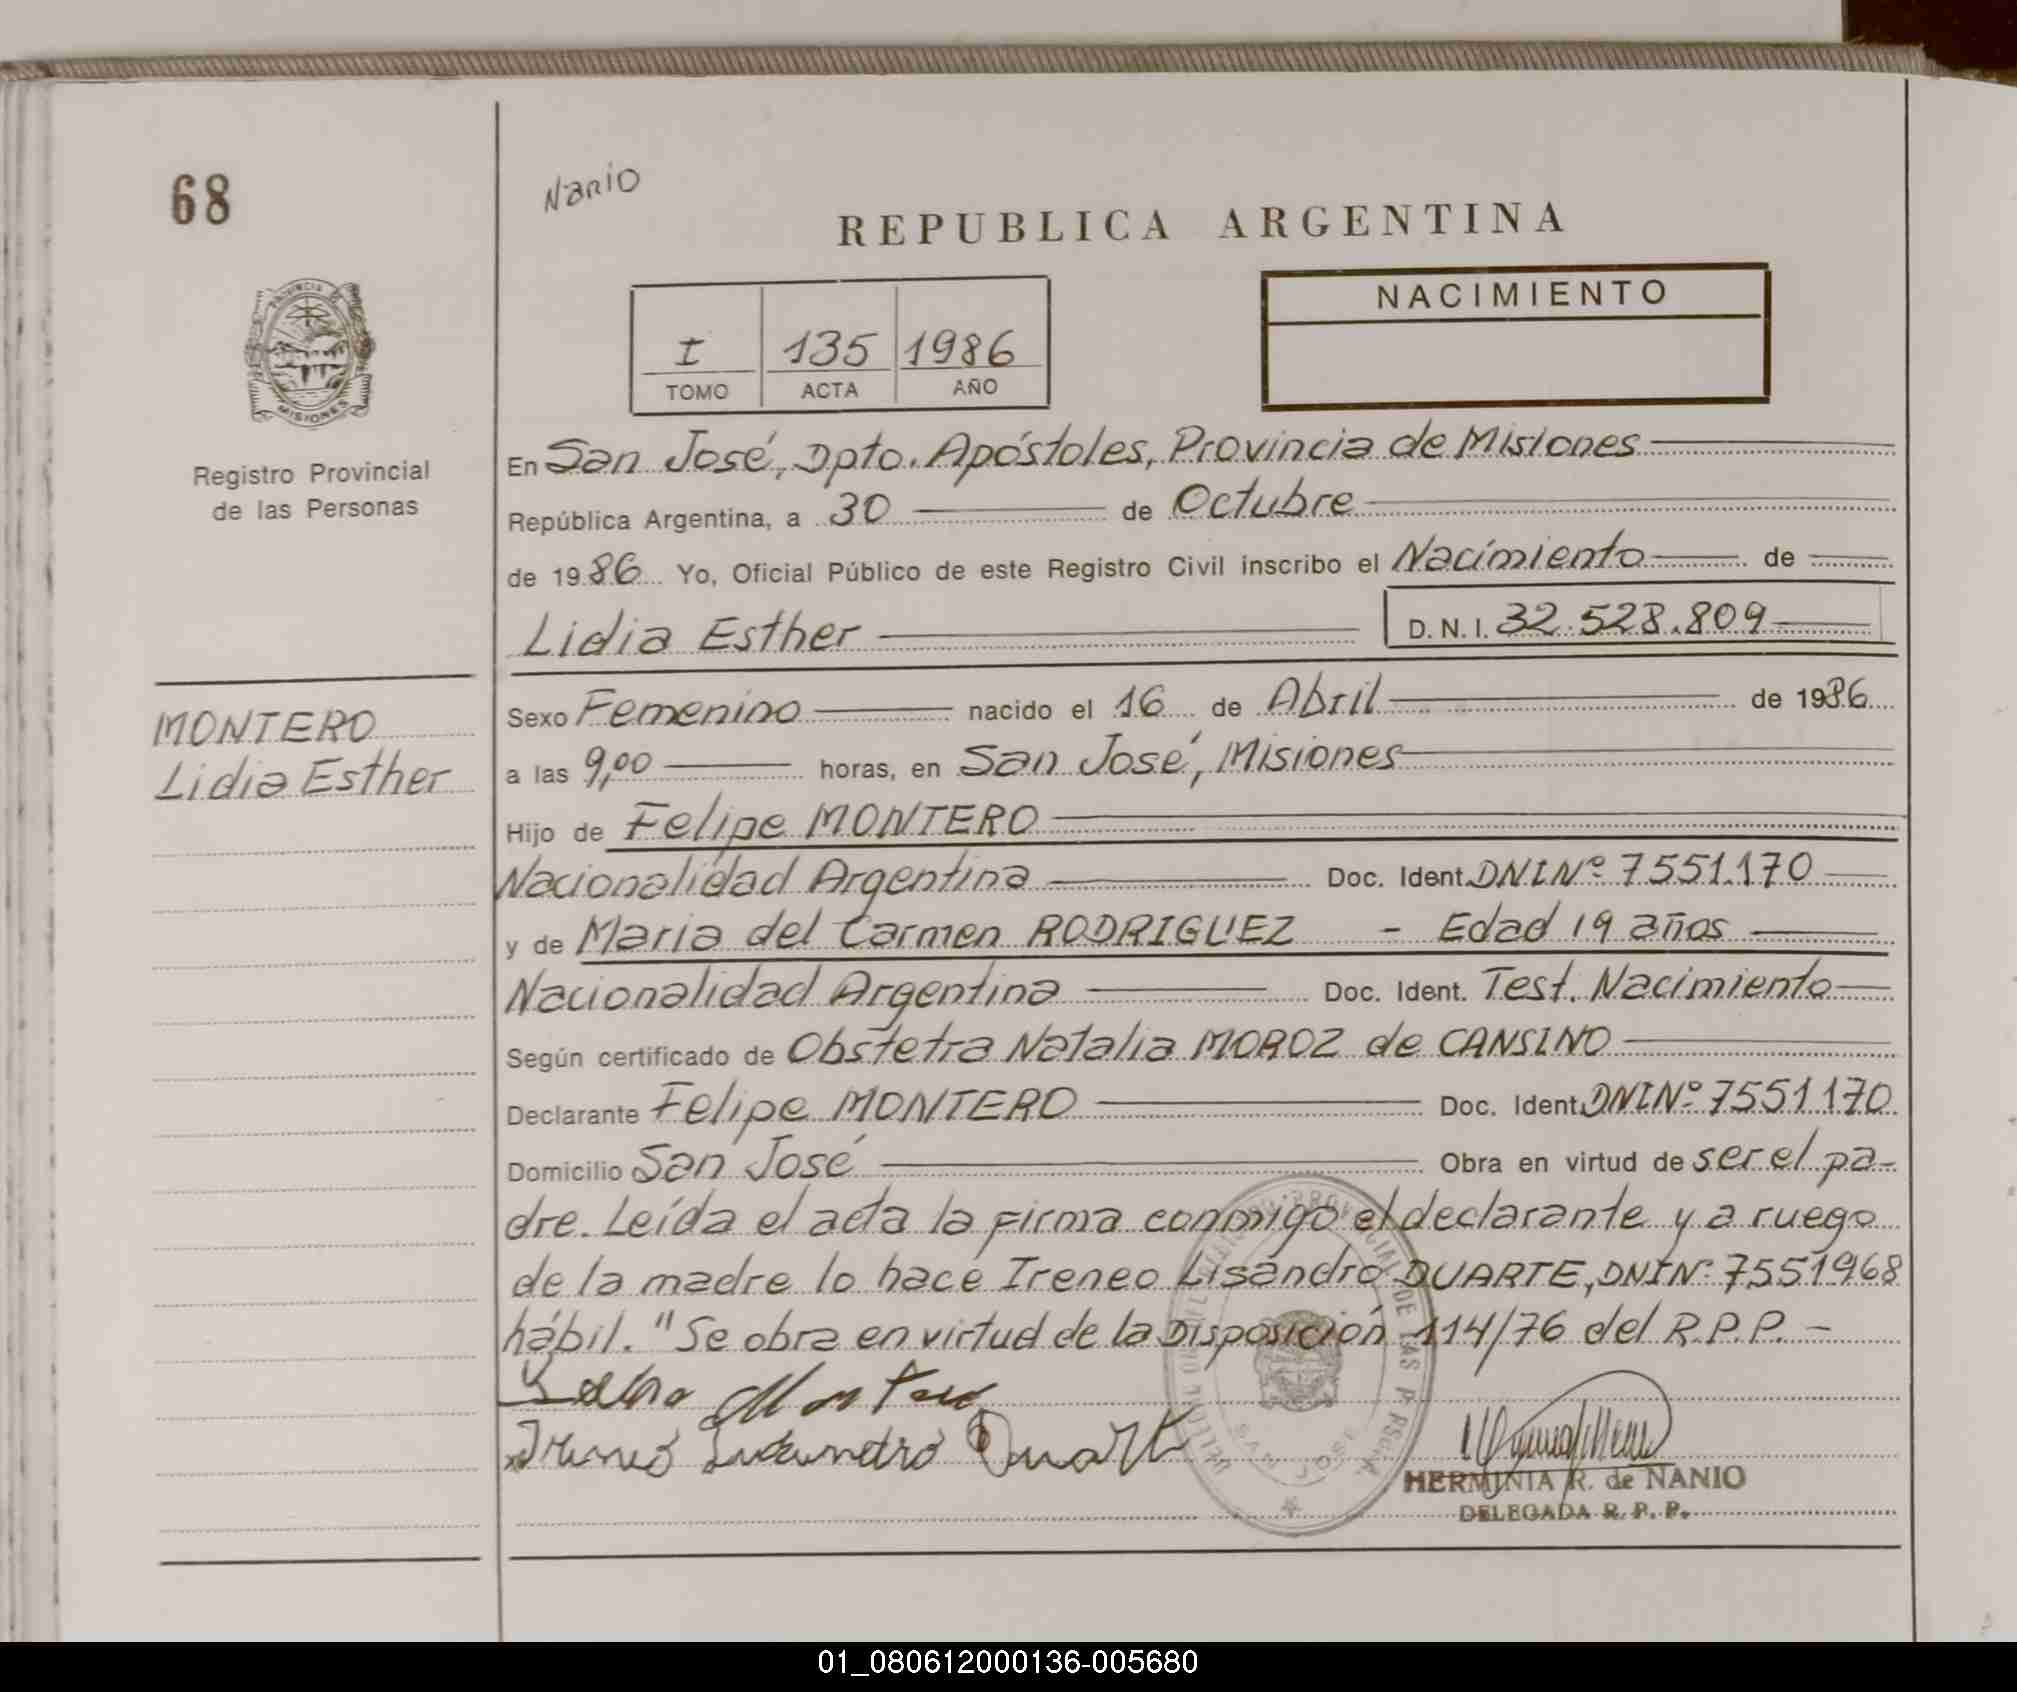 68
Nanio
REPUBLICA ARGENTINA
NACIMIENTO
I 135 1986
TOMO ACTA AÑO
PROVINCIA DE
MISIONES
Registro Provincial
de las Personas
MONTERO
Lidia Esther
En San José, Dpto. Apóstoles, Provincia de Misiones
República Argentina, a 30 de Octubre
de 1986 Yo, Oficial Público de este Registro Civil inscribo el Nacimiento de
Lidia Esther D. N. I. 32.528.809
Sexo Femenino nacido el 16 de Abril de 1986
a las 9,00 horas, en San José, Misiones
Hijo de Felipe MONTERO
Nacionalidad Argentina Doc. Ident. DNI Nº 7551.170
y de Maria del Carmen RODRIGUEZ - Edad 19 años
Nacionalidad Argentina Doc. Ident. Test. Nacimiento
Según certificado de Obstetra Natalia MOROZ de CANSINO
Declarante Felipe MONTERO Doc. Ident. DNI Nº 7551.170
Domicilio San José Obra en virtud de ser el pa-
dre. Leída el acta la firma conmigo el declarante y a ruego
de la madre lo hace Ireneo Lisandro DUARTE, DNI Nº 7551968
hábil. "Se obra en virtud de la Disposición 114/76 del R.P.P. -
Montero
Duarte
SAN JOSE
HERMINIA R. de NANIO
DELEGADA R. P. P.
01_080612000136-005680